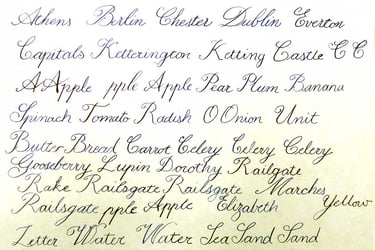 Athens Berlin Chester Dublin Everton
Capitals Ketterington Ketting Castle C C
A Apple pple Apple Pear Plum Banana
Spinach Tomato Radish O Onion Unit
Butter Bread Carrot Celery Celery Celery
Gooseberry Lupin Dorothy Railgate
Rake Railsgate Railsgate Marches
Railsgate pple Apple Elizabeth Yellow
Letter Water Water Sea Sand Sand